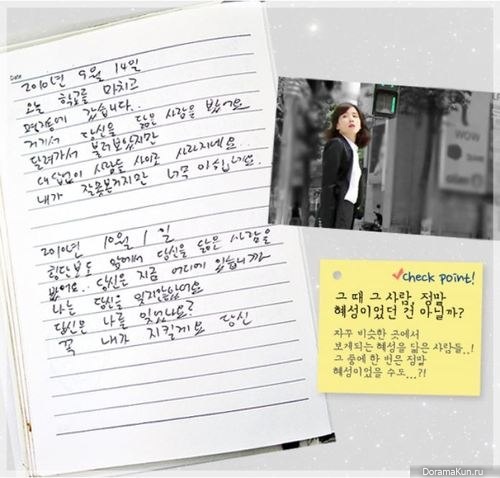 Date
2010년 9월 14일
오늘 학교를 마치고
명동에 갔습니다..
거기서 당신을 닮은 사람을 봤어요
달려가서 불러보았지만
대답없이 사람들 사이로 사라지네요..
내가 잘못본거지만 너무 아쉽네요..
2010년 10월 1일
횡단보도 앞에서 당신을 닮은 사람을
봤어요.. 당신은 지금 어디에 있습니까
나는 당신을 잊지않았어요
당신은 나를 잊었나요?
꼭 내가 지킬게요 당신
WOW
check point!
그 때 그 사람, 정말
혜성이었던 건 아닐까?
자꾸 비슷한 곳에서
보게되는 혜성을 닮은 사람들..!
그 중에 한 번은 정말
혜성이었을 수도...?!
DoramaKun.ru